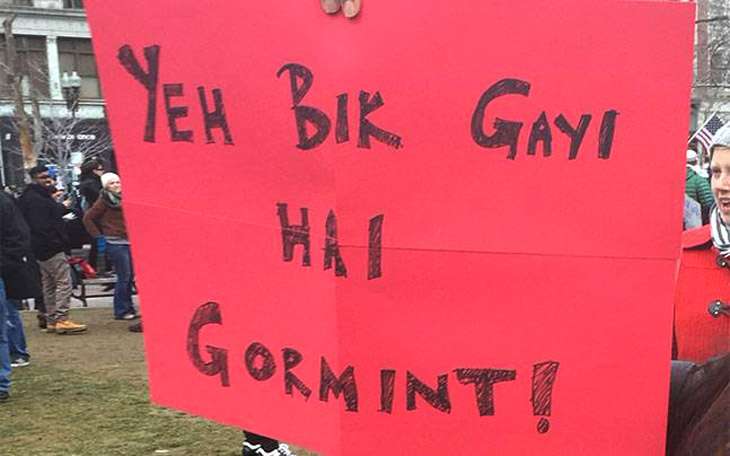 YEH BIK GAYI
HAI
GORMINT!